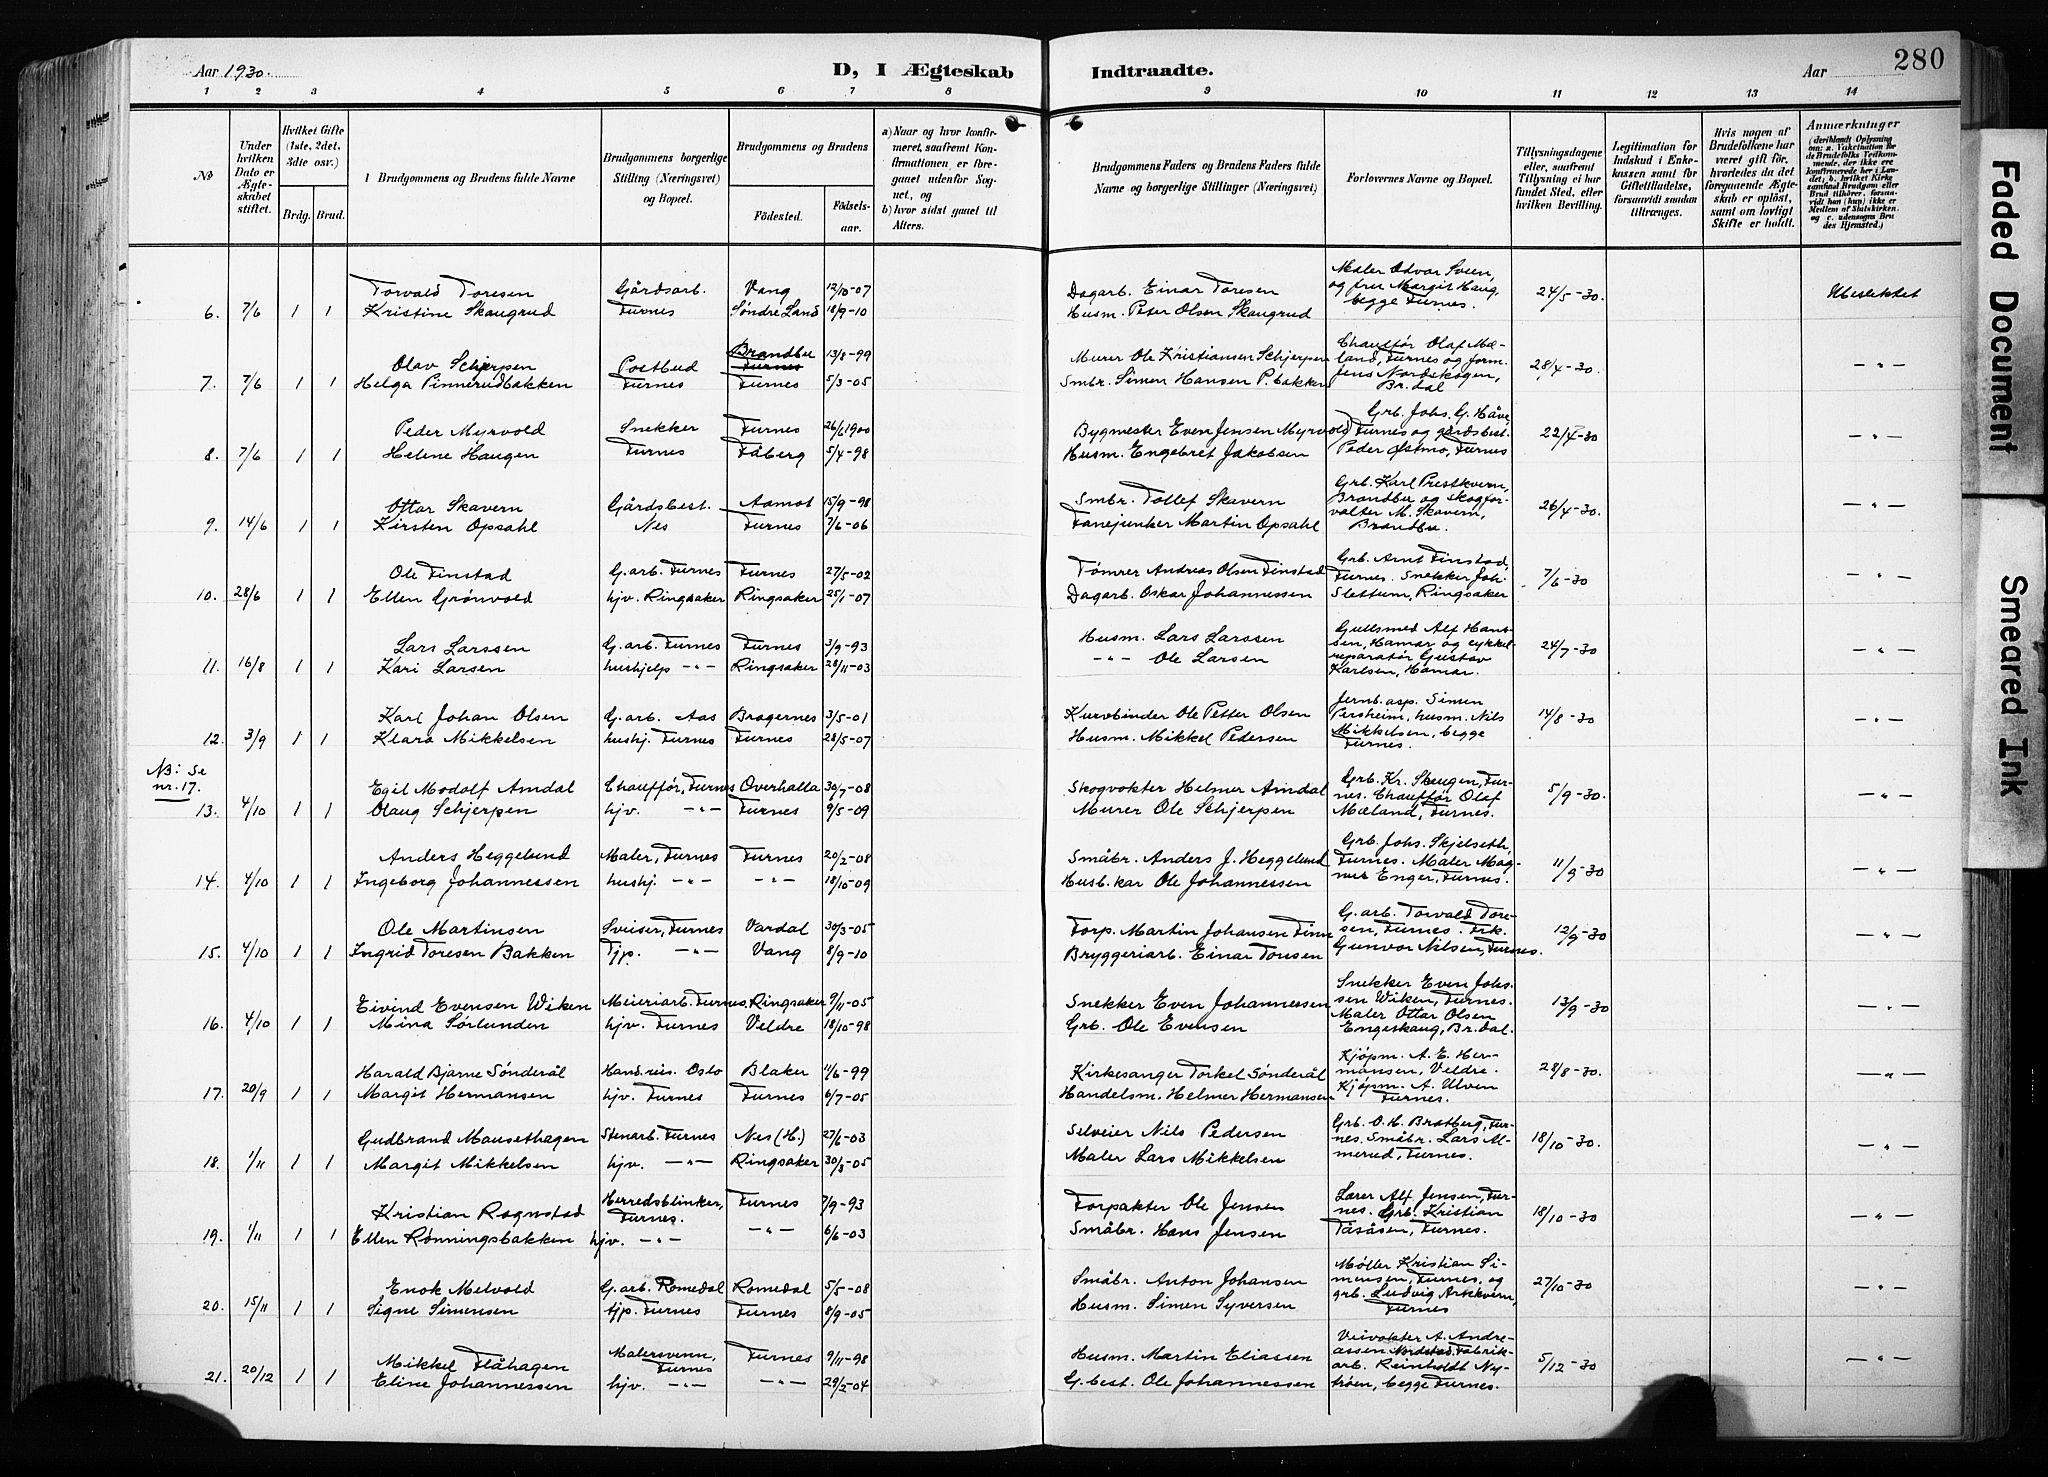 Aar 1930.
D, I Ægteskab
Indtraadte.
Aar
280
1 2 3 4 5 6 7 8 9 10 11 12 13 14
No
Under hvilken Dato er Ægteskabet stiftet.
Hvilket Gifte (1ste, 2det, 3die osv.)
Brdg. Brud.
Brudgommens og Brudens fulde Navne
Brudgommens borgerlige Stilling (Næringsvei) og Bopæl.
Brudgommens og Brudens
Födested. Födselsaar.
a) Naar og hvor konfirmeret, saafremt Konfirmationen er foregaaet udenfor Sognet, og
b) hvor sidst gaaet til Alters.
Brudgommens Faders og Brudens Faders fulde Navne og borgerlige Stillinger (Næringsvei)
Forlovernes Navne og Bopæl.
Tillysningsdagene eller, saafremt Tillysning ei har fundet Sted, efter hvilken Bevilling.
Legitimation for Indskud i Enkekassen samt for Giftetilladelse, forsaavidt saadan tiltrænges.
Hvis nogen af Brudefolkene har været gift för, hvorledes da det foregaaende Ægteskab er oplöst, samt om lovligt Skifte er holdt.
Anmærkninger
(deriblandt Oplysning om: a. Vakcination for de Brudefolks Vedkommende, der ikke ere konfirmerede her i Landet; b. hvilket Kirkesamfund Brudgom eller Brud tilhörer, forsaavidt han (hun) ikke er Medlem af Statskirken, og c. udensogns Brudes Hjemsted.)
Torvald Toresen Gårdsarb. Vang 12/10-07 Dagarb. Einar Toresen Maler Odvar Sveen, og fru Margit Haug, begge Furnes. 24/5-30. Ubeslektet
6. 7/6 1 1 Kristine Skaugrud Furnes Søndre Land 18/9-10 Husm. Peter Olsen Skaugrud
Olav Schjerpen Postbud Brandbu Furnes 13/8-99 Murer Ole Kristiansen Schjerpen Chauffør Olaf Mæland, Furnes og form. Jens Nordskogen, Br.dal 28/4-30. -"-
7. 7/6 1 1 Helga Pinnerudbakken Furnes Furnes 5/3-05 Smbr. Simen Hansen P.bakken
Peder Myrvold Snekker Furnes 26/6 1900 Bygmester Even Jensen Myrvold Grb. Johs. G. Håve, Furnes og gårdsbest. Peder Østmo, Furnes 22/4-30 -"-
8. 7/6 1 1 Helene Haugen Furnes Fåberg 5/4-98 Husm. Engebret Jakobsen
Ottar Skavern Gårdsbest. Aamot 15/9-98 Smbr. Tollef Skavern Grb. Karl Prestkvern, Brandbu og skogforvalter M. Skavern, Brandbu. 26/4-30. -"-
9. 14/6 1 1 Kirsten Opsahl Nes Furnes 7/6-06 Fanejunker Martin Opsahl
Ole Finstad G.arb. Furnes Furnes 27/5-02 Tømrer Andreas Olsen Finstad Grb. Arnt Finstad, Furnes. Snekker Joh. Slettum, Ringsaker 7/6-30 -"-
10. 28/6 1 1 Ellen Grønvold hjv. Ringsaker Ringsaker 25/1-07 Dagarb. Oskar Johannessen
Lars Larssen G.arb. Furnes Furnes 3/9-93 Husm. Lars Larssen Gullsmed Alf Hanssen, Hamar og cykkelreparatør Gustav Karlsen, Hamar. 24/7-30 -"-
11. 16/8 1 1 Kari Larsen hushjelp -"- Ringsaker 28/11-03 -"- Ole Larsen
Karl Johan Olsen G.arb. Aas Bragernes 3/5-01 Kurvbinder Ole Petter Olsen Jernb.asp. Simen Persheim, husm. Nils Mikkelsen, begge Furnes. 14/8-30 -"-
12. 3/9 1 1 Klara Mikkelsen hushj. Furnes Furnes 28/5-07 Husm. Mikkel Pedersen
NB: Se nr. 17.
Egil Modolf Amdal Chauffør, Furnes Overhalla 30/7-08 Skogvokter Helmer Amdal Grb. Kr. Skaugen, Furnes. Chauffør Olaf Mæland, Furnes. 5/9-30. -"-
13. 4/10 1 1 Olaug Schjerpen hjv. -"- Furnes 9/5-09 Murer Ole Schjerpen
Anders Heggelund Maler, Furnes Furnes 20/2-08 Småbr. Anders J. Heggelund Grb. Johs. Skjelseth, Furnes. Maler Magnus Enger, Furnes. 11/9-30 -"-
14. 4/10 1 1 Ingeborg Johannessen hushj. -"- -"- 18/10-09 Husb.kar Ole Johannessen
Ole Martinsen Sveiser, Furnes Vardal 30/3-05 Forp. Martin Johansen Finn G.arb. Torvald Toresen, Furnes. Frk. Gunvor Nilsen, Furnes. 12/9-30 -"-
15. 4/10 1 1 Ingrid Toresen Bakken Tjp. -"- Vang 8/9-10 Bryggeriarb. Einar Toresen
Eivind Evensen Wiken Meieriarb. Furnes. Ringsaker 9/11-05 Snekker Even Johannessen Snekker Even Johs.sen Wiken, Furnes. Maler Ottar Olsen Engeskaug, Br.dal. 13/9-30 -"-
16. 4/10 1 1 Mina Sørlunden hjv. Furnes Veldre 18/10-98 Grb. Ole Evensen
Harald Bjarne Sønderål Hand.reis. Oslo Blaker 11/6-99 Kirkesanger Torkel Sønderål Kjøpm. A. E. Hermansen, Veldre. Kjøpm. A. Ulven Furnes. 28/8-30. -"-
17. 20/9 1 1 Margit Hermansen hjv. Furnes Furnes 6/7-05 Handelsm. Helmer Hermansen
Gudbrand Mausethagen Stenarb. Furnes Nes (H.) 27/6-03 Selveier Nils Pedersen Grb. O. H. Bratberg, Furnes. Småbr. Lars Almerud, Furnes. 18/10-30. "
18. 1/11 1 1 Margit Mikkelsen hjv. -"- Ringsaker 30/3-05 Maler Lars Mikkelsen
Kristian Rognstad Herredsblinker, Furnes. Furnes 7/9-93 Forpakter Ole Jensen Lærer Alf Jensen, Furnes. Grb. Kristian Tåsåsen, Furnes. 18/10-30 -"-
19. 1/11 1 1 Ellen Rønningsbakken hjv. -"- -"- 6/6-03 Småbr. Hans Jensen
Enok Melvold G.arb. Romedal Romedal 5/5-08 Småbr. Anton Johansen Møller Kristian Simensen, Furnes, og grb. Ludvig Arnkvern, Furnes 27/10-30 -"-
20. 15/11 1 1 Signe Simensen tjp. Furnes Furnes 8/9-05 Husm. Simen Syversen
Mikkel Flåhagen Malersvenn, Furnes Furnes 9/11-98 Husm. Martin Eliassen Veivokter A. Andreassen Nordstad. Fabrikarb. Reinholdt Nytrøen, begge Furnes. 5/12-30 -"-
21. 20/12 1 1 Eline Johannessen hjv. -"- -"- 29/2-04 G.best. Ole Johannessen
Faded Document
Smeared Ink